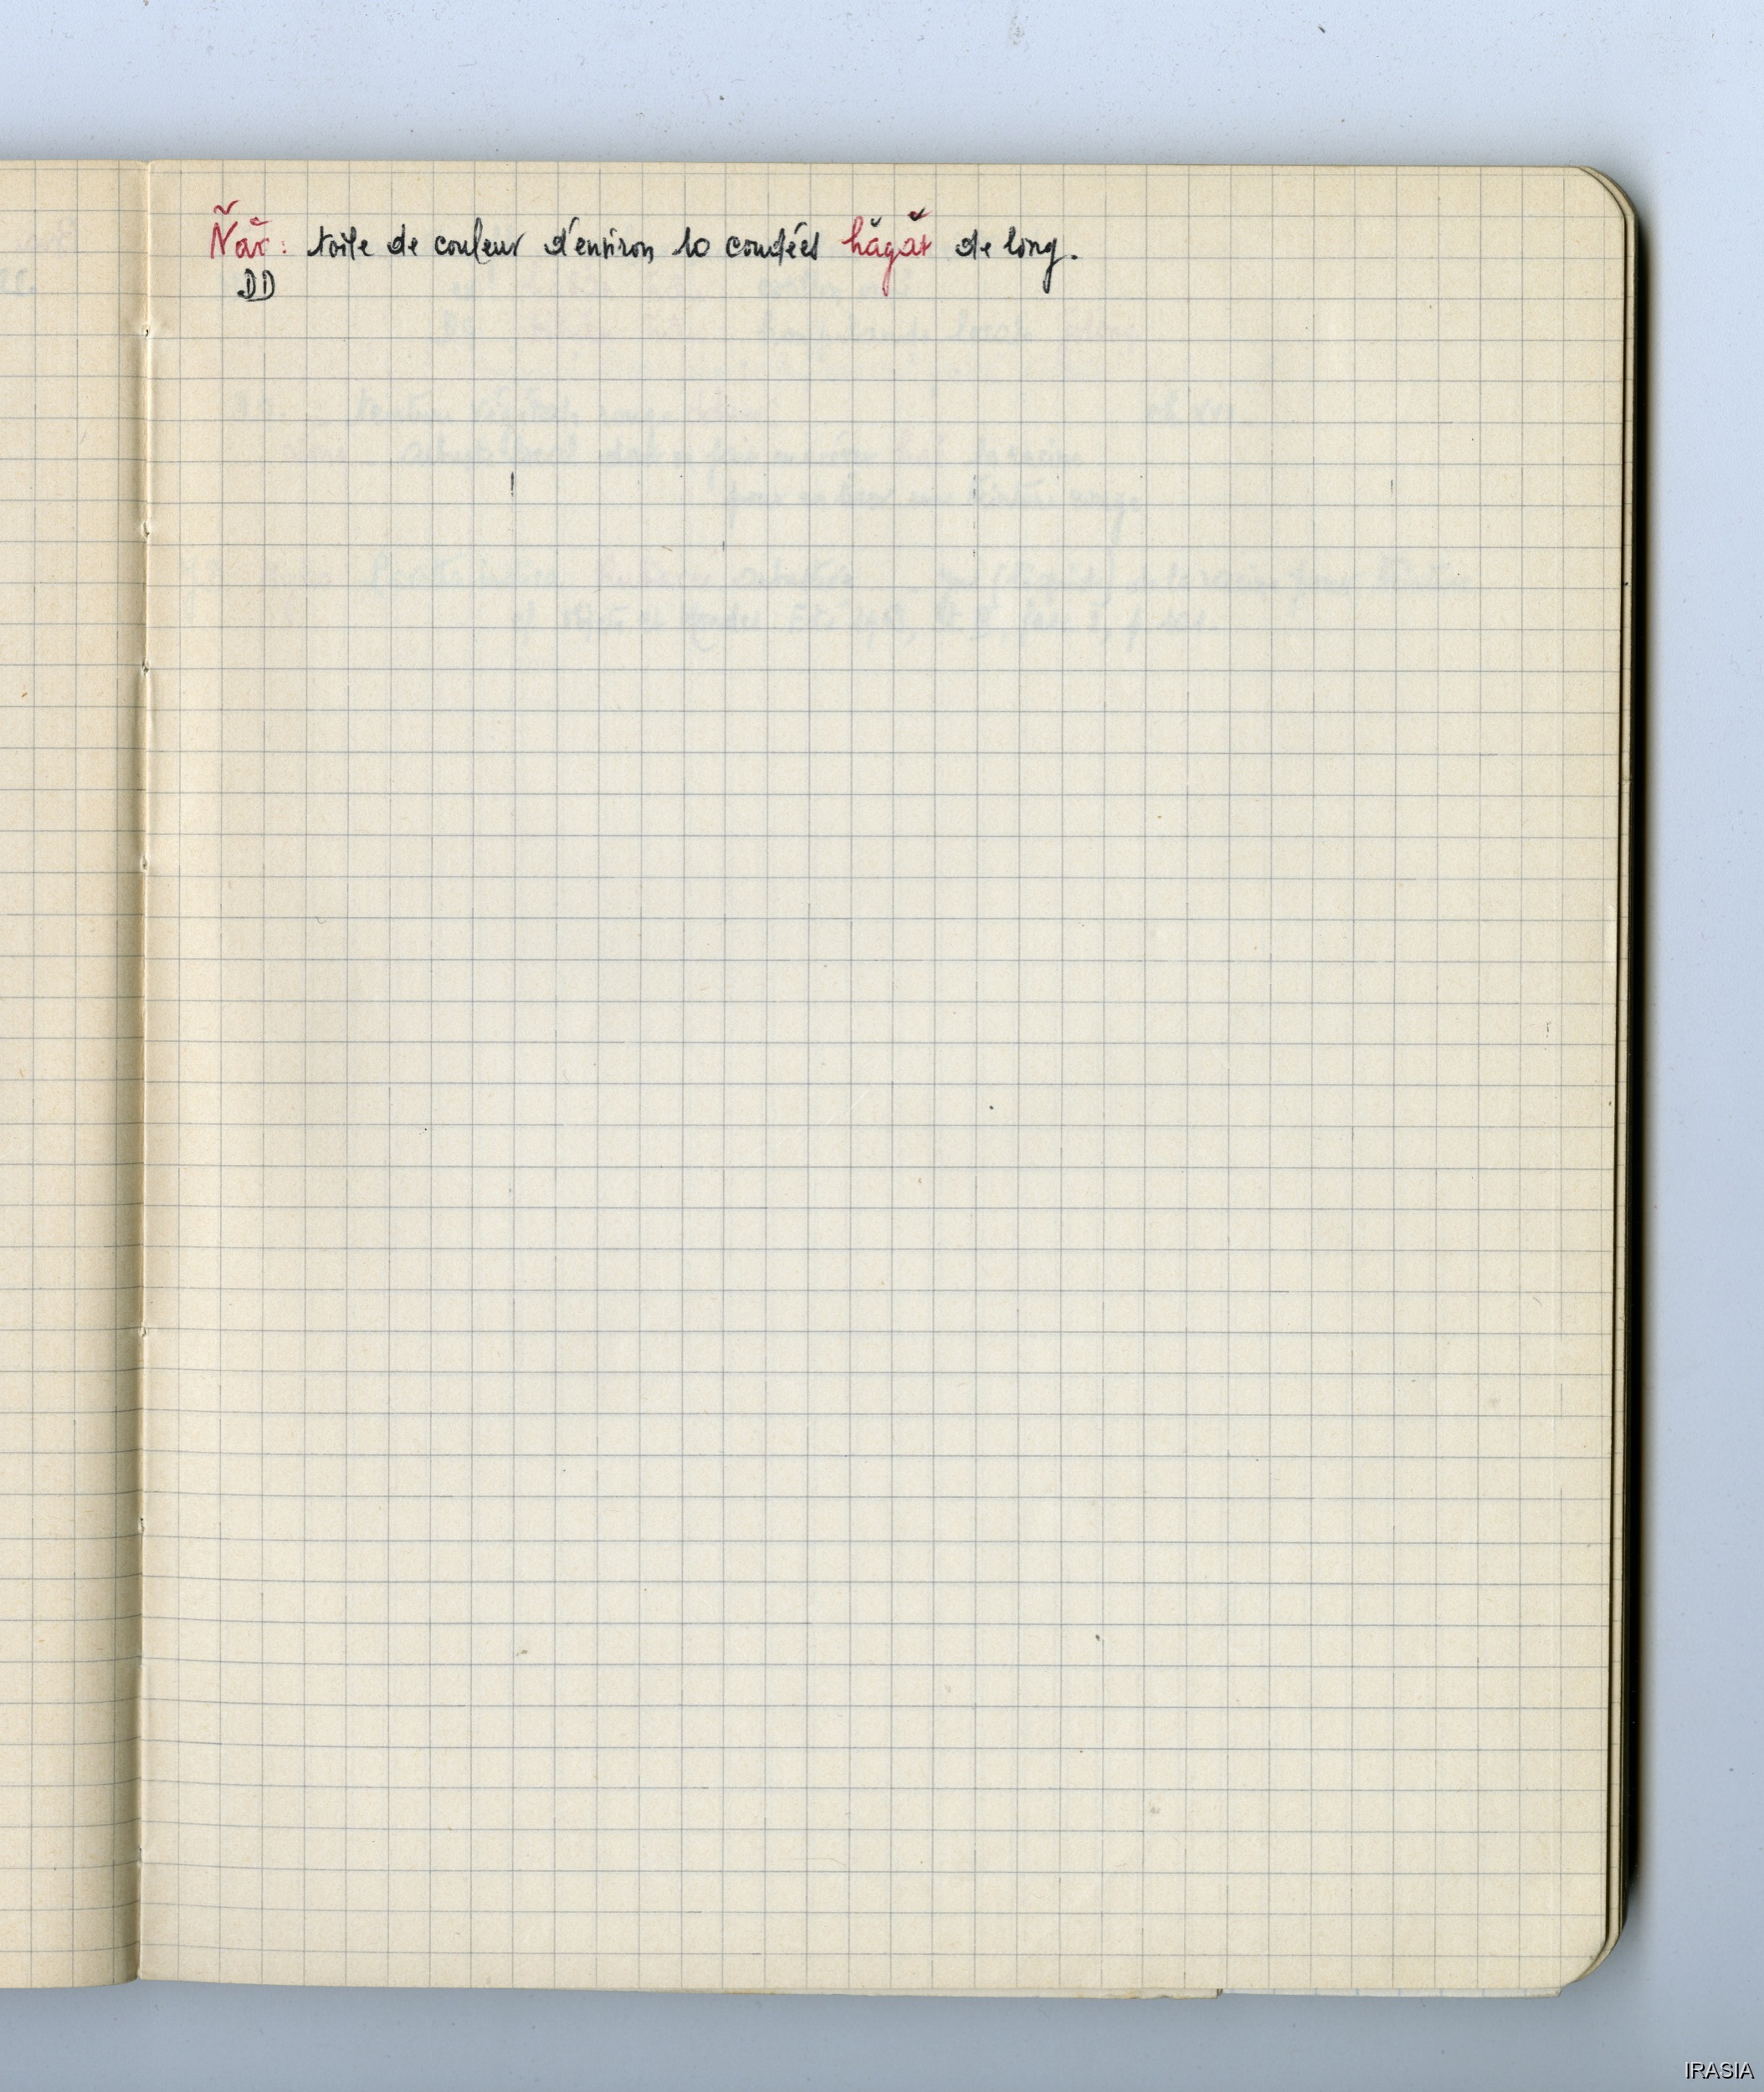 Ñăr : toile de couleur d'environ 10 coudées hăgăt de long.
DD
IRASIA